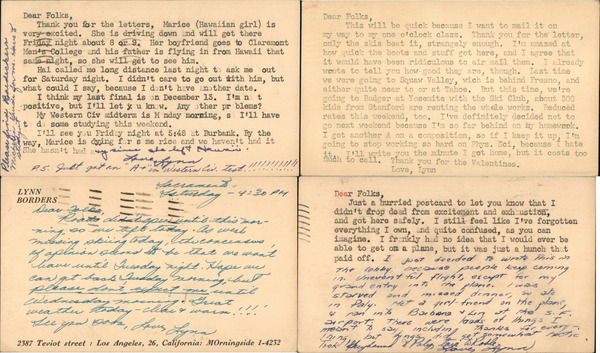 Dear Folks,
Thank you for the letters, Marice (Hawaiian girl) is
very excited. She is driving down and will get there
Friday night about 8 or 9. Her boyfriend goes to Claremont
Men's College and his father is flying in from Hawaii that
same night, so she will get to see him.
Hal called me long distance last night to ask me out
for Saturday night. I didn't care to go out with him, but
what could I say, because I didn't have another date.
I think my last final is on December 15. I'm not
positive, but I'll let you know. Any other problems?
My Western Civ midterm is Monday morning, so I'll have
to do some studying this weekend.
I'll see you Friday night at 5:48 at Burbank. By the
way, Marice is dying for some rice and we haven't had it
she hasn't had any since she left Hawaii.
Love, Lynn
P.S. Just got an A- on Western Civ. test!!!!!!!!
Dear Folks,
This will be quick because I want to mail it on
my way to my one o'clock class. Thank you for the letter,
only the six beat it, strangely enough. I'm amazed at
how quick the boots and stuff got here, and I agree that
it would have been ridiculous to air mail them. I already
wrote to tell you how good they are, though. Last time
we were going to Squaw Valley, which is behind Fresno, and
either quite near to or at Tahoe. But this time, we're
going to Badger at Yosemite with the Ski Club, about 300
kids from Stanford are renting the whole works. Reduced
rates this weekend, too. I've definitely decided not to
go next weekend because I'm so far behind on my homework.
I got another A on a composition, so if I keep it up, I'm
going to stop working so hard on Phys. Sci, because I hate
it. I'll write you the minute I get home, but it costs too
much to call. Thank you for the Valentines.
Love, Lynn
LYNN
BORDERS
Sacramento
Saturday - 4:30 PM
Dear Folks,
until this mor-
ning, so we left today. A week
missing skiing today, the consensus
of opinion seemed to be that we won't
leave until Tuesday night. Hope we
can get back Tuesday evening, but
please don't expect me until
Wednesday morning. Great
weather today - blue & warm!!!
See you soon, Love, Lynn
2387 Teviot street : Los Angeles, 26, California: MOrningside 1-4232
Dear Folks,
Just a hurried postcard to let you know that I
didn't drop dead from excitement and exhaustion,
and got here safely. I still feel like I've forgotten
everything I own, and quite confused, as you can
imagine. I frankly had no idea that I would ever be
able to get on a plane, but it was just a hunch that
paid off. I just decided to write this in
the lobby, because people keep coming
in. Uneventful flight, except for my
grand entry into the plane. I was
starved and missed dinner, so ate
in Paly. Met a girl friend on the plane,
& ran into Barbara & Lin at the S.F.
airport. There were loads of things I
meant to say, including thanks for every-
thing, but things got somewhat hectic.